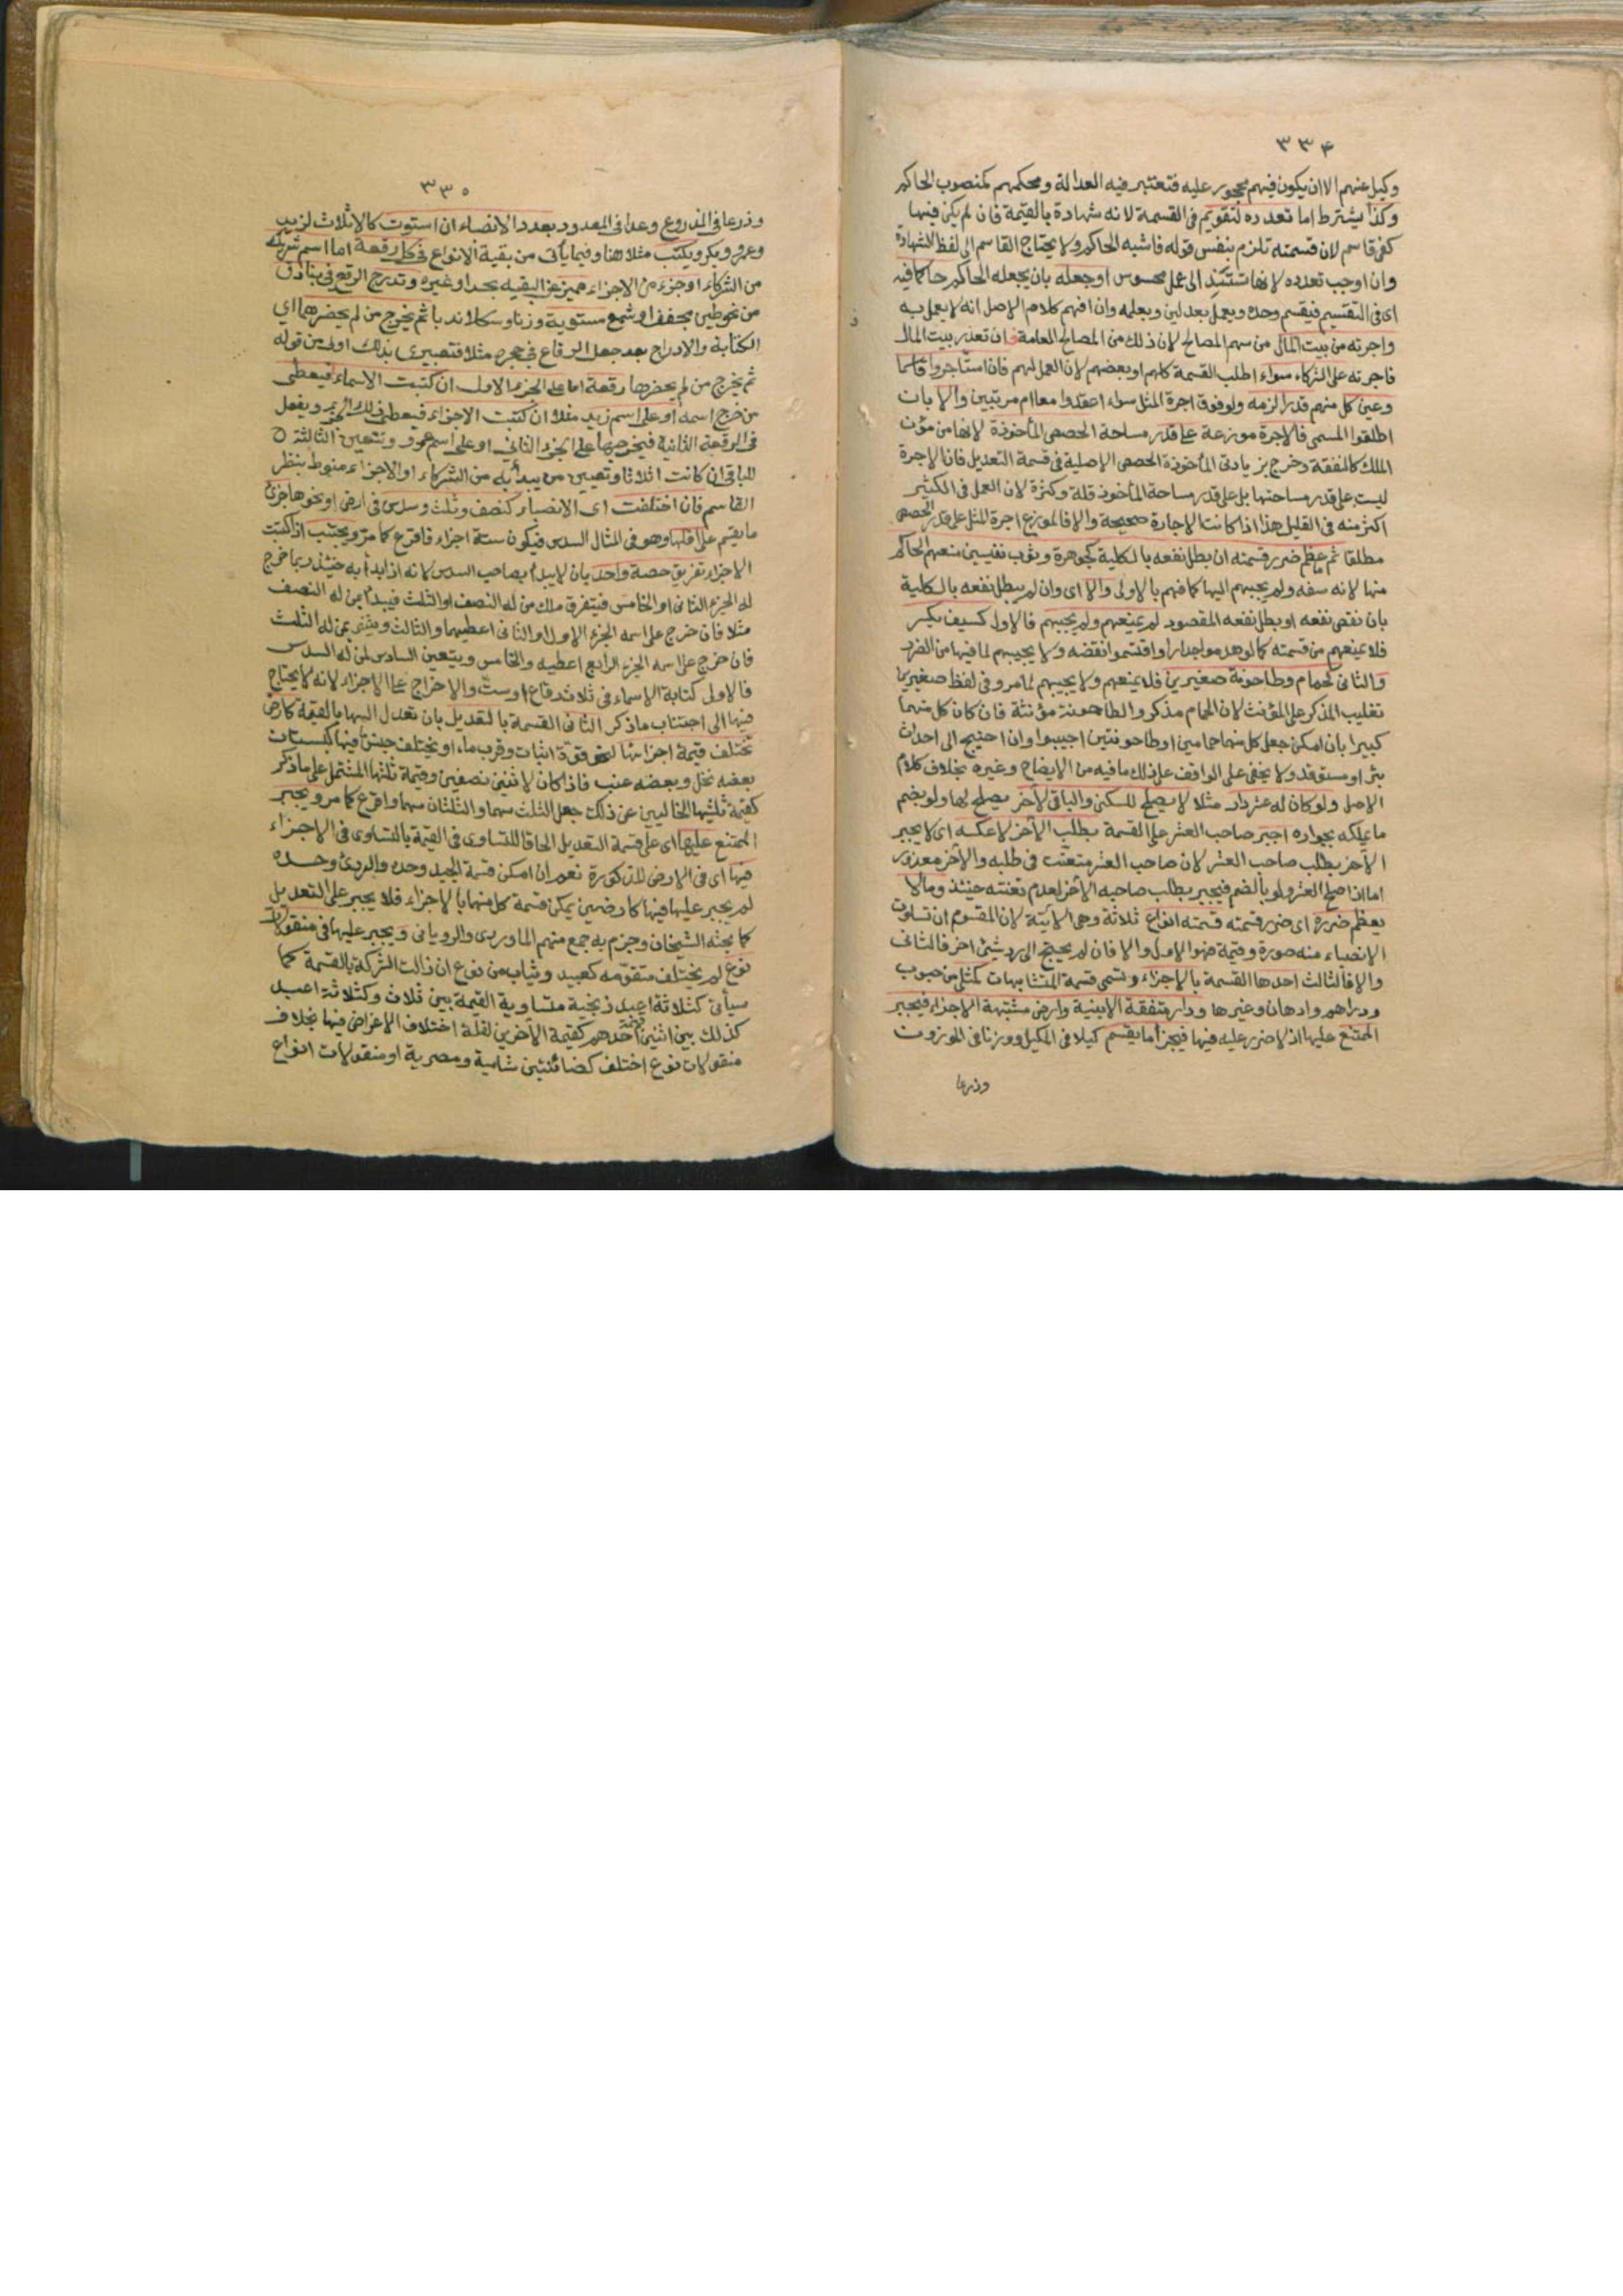 ٣٣٤
وكيل عنهم الا ان يكون فيهم محجور عليه فتعتبر فيه العدالة ومحكمهم كمنصوب الحاكم
وكذا يشترط اما تعدده لتقويم في القسمة لانه شهادة بالقيمة فان لم يكن فيها
كفى قاسم لان قسمته تلزم بنفس قوله فاشبه الحاكم ولا يحتاج القاسم الى لفظ الشهادة
وان اوجب تعدده لانها تستند الى عمل محسوس اوجعله بان يجعله الحاكم حاكما فيه
اى فى التقسيم فيقسم وحده ويعمل بعدلين وبعلمه وان افهم كلام الاصل انه لا يعمل به
واجرته من بيت المال من سهم المصالح لان ذلك من المصالح العامة فان تعذر بيت المال
فاجرته على الشركاء سواء اطلب القسمة كلهم او بعضهم لان العمل لهم فان استأجروا قاسما
وعين كل منهم قدرا لزمه ولو فوق اجرة المثل سواء اعقدوا معا ام مرتبين والا بان
اطلقوا المسمى فالاجرة موزعة على قدر مساحة الحصص المأخوذة لانها من مؤن
الملك كالنفقة وخرج بزيادتى المأخوذة الحصص الاصلية فى قسمة التعديل فان الاجرة
ليست على قدر مساحتها بل على قدر مساحة المأخوذ قلة وكثرة لان العمل فى الكثير
اكثر منه فى القليل هذا اذا كانت الاجارة صحيحة والا فالموزع اجرة المثل على قدر الحصص
مطلقا ثم ما عظم ضرر قسمته ان بطل نفعه بالكلية كجوهرة وثوب نفيسين منعهم الحاكم
منها لانه سفه ولم يجيبهم اليها كما فهم بالاولى والا اى وان لم يبطل نفعه بالكلية
بان نقص نفعه او بطل نفعه المقصود لم يمنعهم ولم يجبهم فالاول كسيف يكسر
فلا يمنعهم من قسمته كما لو هدموا جدارا واقتسموا نقضه ولا يجيبهم لما فيها من الضرر
والثانى كحمام وطاحونة صغيرين فلا يمنعهم ولا يجيبهم لما مر وفى لفظ صغيرين
تغليب المذكر على المؤنث لان الحمام مذكر والطاحونة مؤنثة فان كان كل منهما
كبيرا بان امكن جعل كل منهما حمامين او طاحونتين اجيبوا وان احتيج الى احداث
بئر او مستوقد ولا يخفى على الواقف على ذلك ما فيه من الايضاح وغيره بخلاف كلام
الاصل ولو كان له عشر دار مثلا لا يصلح للسكنى والباقى لآخر يصلح لها ولو بضم
ما يملكه بجواره اجبر صاحب العشر على القسمة بطلب الآخر لا عكسه اى لا يجبر
الآخر بطلب صاحب العشر لان صاحب العشر متعنت فى طلبه والآخر معذور
اما اذا صلح العشر ولو بالضم فيجبر بطلب صاحبه الآخر لعدم تعنته حينئذ وما لا
يعظم ضرره اى ضرر قسمته قسمته انواع ثلاثة وهى الاتية لان المقسوم ان تساوت
الانصباء منه صورة وقيمة فهو الاول والا فان لم يحتج الى رد شئ اخر فالثانى
والا فالثالث احدها القسمة بالاجزاء وتسمى قسمة المتشابهات كمثلى من حبوب
ودراهم وادهان وغيرها ودار متفقة الابنية وارض مشتبهة الاجزاء فيجبر
الممتنع عليها اذ لا ضرر عليه فيها فيجزأ ما يقسم كيلا فى المكيل ووزنا فى الموزون
وذرعا
٣٣٥
وذرعا فى المذروع وعدا فى المعدود بعدد الانصباء ان استوت كالاثلاث لزيد
وعمرو وبكر ويكتب مثلا هنا وفيما يأتى من بقية الانواع فى كل رقعة اما اسم شريك
من الشركاء او جزء من الاجزاء مميز عن البقية بحد او غيره وتدرج الرقع فى بنادق
من نحو طين مجفف او شمع مستوية وزنا وشكلا ندبا ثم يخرج من لم يحضرهما اى
الكتابة والادراج بعد جعل الرقاع فى حجره مثلا فتعبيرى بذلك اولى من قوله
ثم يخرج من لم يحضرها رقعة اما على الجزء الاول ان كتبت الاسماء فيعطى
من خرج اسمه او على اسم زيد مثلا ان كتبت الاجزاء فيعطى ذلك الجزء ويفعل
فى الرقعة الثانية فيخرجها على الجزء الثانى او على اسم عمرو وتتعين الثالثة
للباقى ان كانت اثلاثا وتعيين من يبدأ به من الشركاء او الاجزاء منوط بنظر
القاسم فان اختلفت اى الانصباء كنصف وثلث وسدس فى ارض او نحوها جزئ
ما يقسم على اقلها وهو فى المثال السدس فيكون ستة اجزاء فاقرع كما مر ويجتنب اذا كتبت
الاجزاء تفريق حصة واحد بان لا يبدأ بصاحب السدس لانه اذا بدأ به حينئذ ربما خرج
له الجزء الثانى او الخامس فيتفرق ملك من له النصف او الثلث فيبدأ بمن له النصف
مثلا فان خرج على اسمه الجزء الاول او الثانى اعطيهما والثالث ويثنى بمن له الثلث
فان خرج على اسمه الجزء الرابع اعطيه والخامس ويتعين السادس لمن له السدس
فالاولى كتابة الاسماء فى ثلاث رقاع او ست والاخراج على الاجزاء لانه لا يحتاج
فيها الى اجتناب ما ذكر الثانى القسمة بالتعديل بان تعدل السهام بالقيمة كارض
تختلف قيمة اجزائها لنحو قوة انبات وقرب ماء او يختلف جنس ما فيها كبستان
بعضه نخل وبعضه عنب فاذا كان لاثنين نصفين وقيمة ثلثها المشتمل على ما ذكر
كقيمة ثلثيها الخاليين عن ذلك جعل الثلث سهما والثلثان سهما واقرع كما مر ويجبر
الممتنع عليها اى على قسمة التعديل الحاقا للتساوى فى القيمة بالتساوى فى الاجزاء
فيها اى فى الارض المذكورة نعم ان امكن قسمة الجيد وحده والردئ وحده
لم يجبر عليها فيها كارضين يمكن قسمة كل منهما بالاجزاء فلا يجبر على التعديل
كما بحثه الشيخان وجزم به جمع منهم الماوردى والرويانى ويجبر عليها فى منقولات
نوع لم يختلف متقومه كعبيد وثياب من نوع ان زالت الشركة بالقسمة كما
سيأتى كثلاثة اعبد زنجية متساوية القيمة بين ثلاث وكثلاثة اعبد
كذلك بين اثنين قيمة احدهم كقيمة الآخرين لقلة اختلاف الاغراض فيها بخلاف
منقولات نوع اختلف كضائنتين شامية ومصرية او منقولات انواع